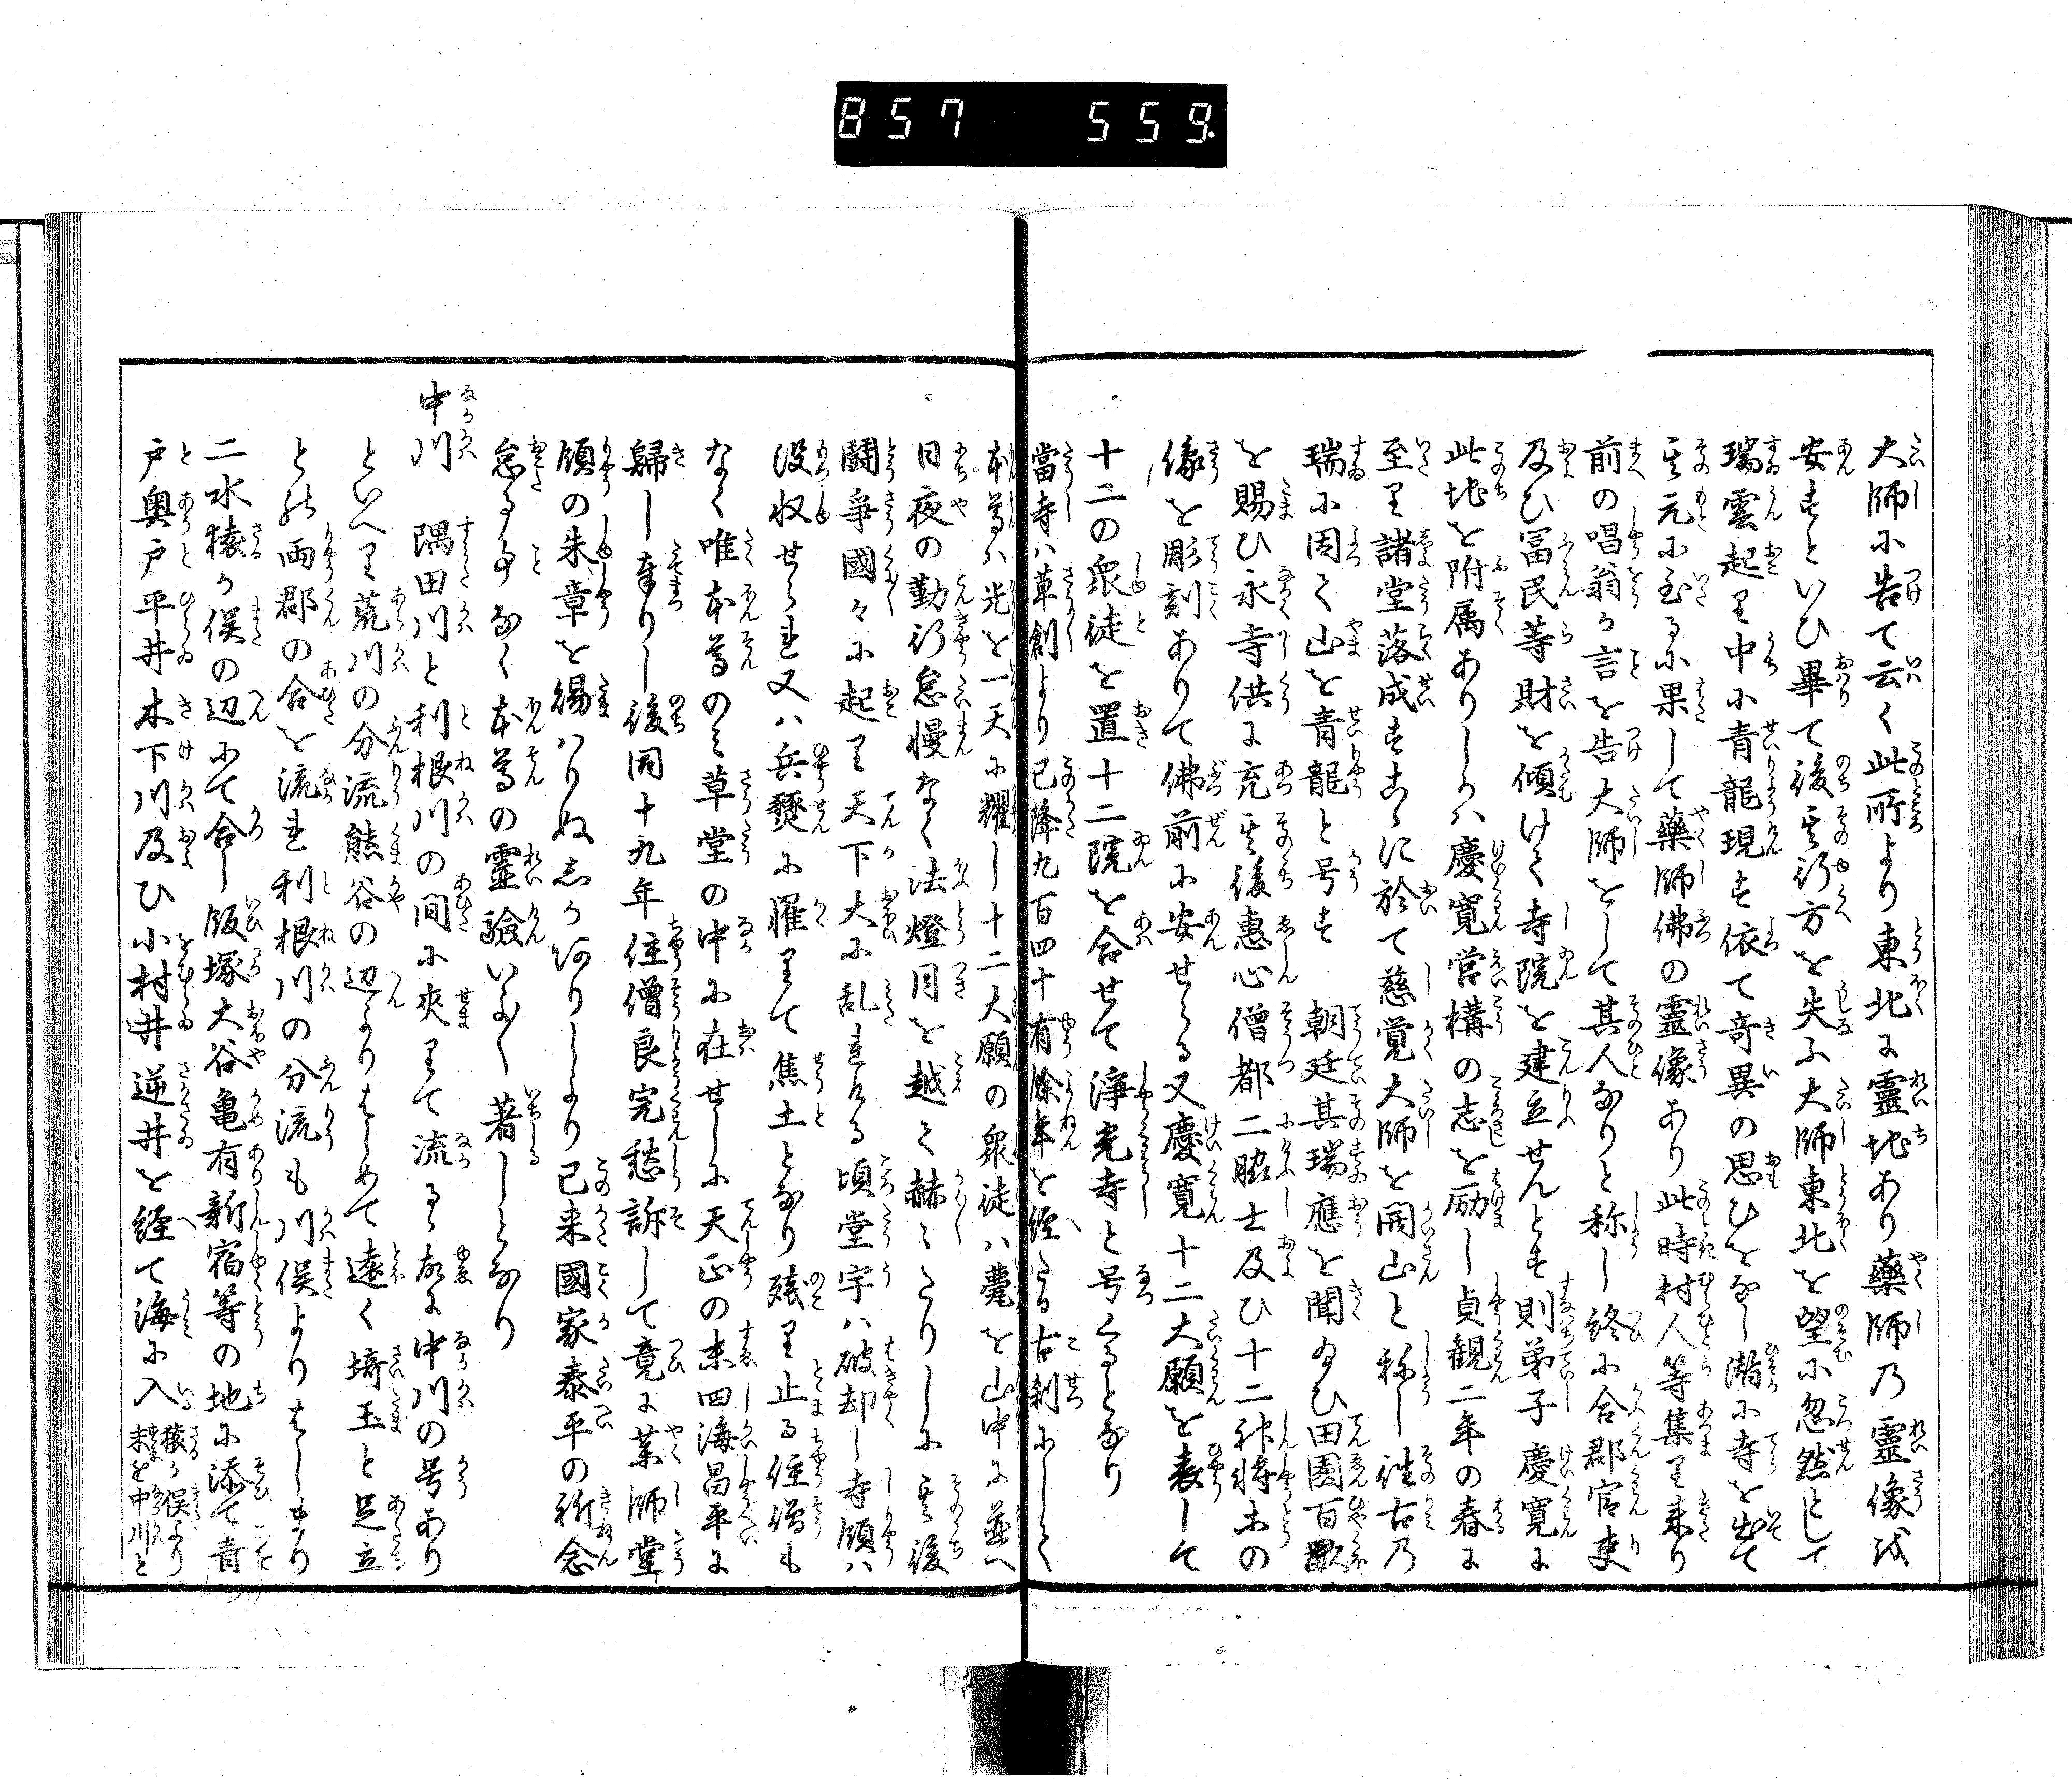 857 559.
大師に告て云く此所より東北に靈地あり藥師乃靈像を
安すといひ畢て後其行方を失ふ大師東北を望に忽然として
瑞雲起り中に青龍現す依て奇異の思ひをなし潜に寺を出て
其元に到るに果して藥師佛の靈像あり此時村人等集り来り
前の唱翁か言を告大師をして其人なりと称し終に合郡官吏
及ひ冨民等財を傾けて寺院を建立せんとす則弟子慶寛に
此地を附属ありしかハ慶寛営構の志を励し貞観二年の春に
至り諸堂落成すこゝに於て慈覚大師を開山と称し往古乃
瑞に因て山を青龍と号す 朝廷其瑞應を聞給ひ田園百畝
を賜ひ永寺供に充其後惠心僧都二脇士及ひ十二神将等の
像を彫刻ありて佛前に安せらる又慶寛十二大願を表して
十二の衆徒を置十二院を合せて淨光寺と号くるとなり
當寺ハ草創より已降九百四十有餘年を経たる古刹にして
本尊ハ光を一天に耀し十二大願の衆徒ハ甍を山中に並へ
日夜の勤行怠慢なく法燈月を越て赫々たりしに其後
鬪爭國々に起り天下大に乱れける頃堂宇ハ破却し寺領ハ
没収せられ又ハ兵燹に罹りて焦土となり殘り止る住僧も
なく唯本尊のミ草堂の中に在せしに天正の末四海昌平に
歸し奉りし後同十九年住僧良完愁訴して竟に薬師堂
領の朱章を賜ハりぬしか有りしより已来國家泰平の祈念
怠る事なく本尊の靈驗いよ〱著しとなり
中川 隅田川と利根川の間に夾りて流るゝ故に中川の号あり
といへり荒川の分流熊谷の辺よりはしめて遠く埼玉と足立
との両郡の合を流れ利根川の分流も川俣よりはしまり
二水猿か俣の辺にて合し飯塚大谷亀有新宿等の地に添て青
戸奥戸平井木下川及ひ小村井逆井を経て海に入 猿か俣より
末を中川と